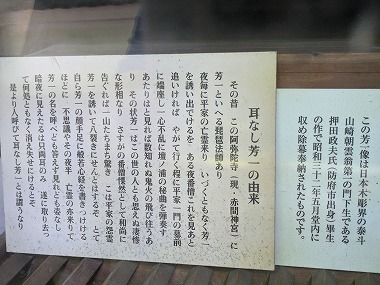 この芳一像は日本木彫界の泰斗
山崎朝雲翁第一の門下生である
押田政夫氏(防府市出身)畢生
の作で昭和三十二年五月堂内に
収め除幕奉納されたものです。
耳なし芳一の由来
その昔 この阿弥陀寺(現・赤間神宮)に
芳一といへる琵琶法師あり
夜毎に平家の亡霊来り いづくともなく芳一
を誘い出でけるを ある夜番僧これを見あと
追いければ やがて行く程に平家一門の墓前
に端座し一心不乱に壇ノ浦の秘曲を弾奏す
あたりはと見れば数知れぬ鬼火の飛び往うあ
り その状芳一はこの世の人とも思えぬ凄惨
な形相なり さすがの番僧慄然として和尚に
告ぐれば一山たちまち驚き こは平家の怨霊
芳一を誘いて八裂きにせんとはするぞ とて
自ら芳一の顔手足に般若心経を書きつけける
ほどに 不思議やその夜半 亡霊の来りて
芳一の名を呼べども答えず見れども姿なし
暗夜に見えたるは只両耳のみ 遂に取り去っ
て何処ともなく消え失せにけるとぞ、
是より人呼びて耳なし芳一とは謂うなり